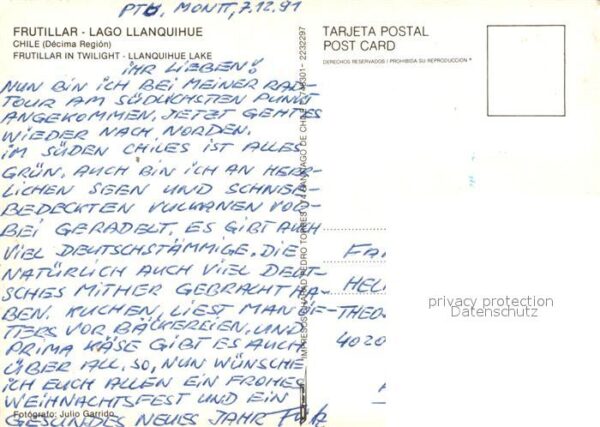 PTO. MONTT, 7.12.91
FRUTILLAR - LAGO LLANQUIHUE
CHILE (Décima Región)
FRUTILLAR IN TWILIGHT - LLANQUIHUE LAKE
IHR LIEBEN!
NUN BIN ICH BEI MEINER RAD
TOUR AM SÜDLICHSTEN PUNKT
ANGEKOMMEN, JETZT GEHT ES
WIEDER NACH NORDEN.
IM SÜDEN CHILES IST ALLES
GRÜN, AUCH BIN ICH AN HERR-
LICHEN SEEN UND SCHNEE-
BEDECKTEN VULKANEN VOR-
BEI GERADELT. ES GIBT AUCH
VIEL DEUTSCHSTÄMMIGE, DIE
NATÜRLICH AUCH VIEL DEUT-
SCHES MITHER GEBRACHT HA-
BEN. KUCHEN, LIEST MAN
VOR BÄCKEREIEN, UND
PRIMA KÄSE GIBT ES AUCH
ÜBER ALL. SO, NUN WÜNSCHE
ICH EUCH ALLEN EIN FROHES
WEIHNACHTSFEST UND EIN
GESUNDES NEUES JAHR
Fotógrafo: Julio Garrido
2232297
TARJETA POSTAL
POST CARD
DERECHOS RESERVADOS / PROHIBIDA SU REPRODUCCION
FA
HEL
THEO
4020
privacy protection
Datenschutz